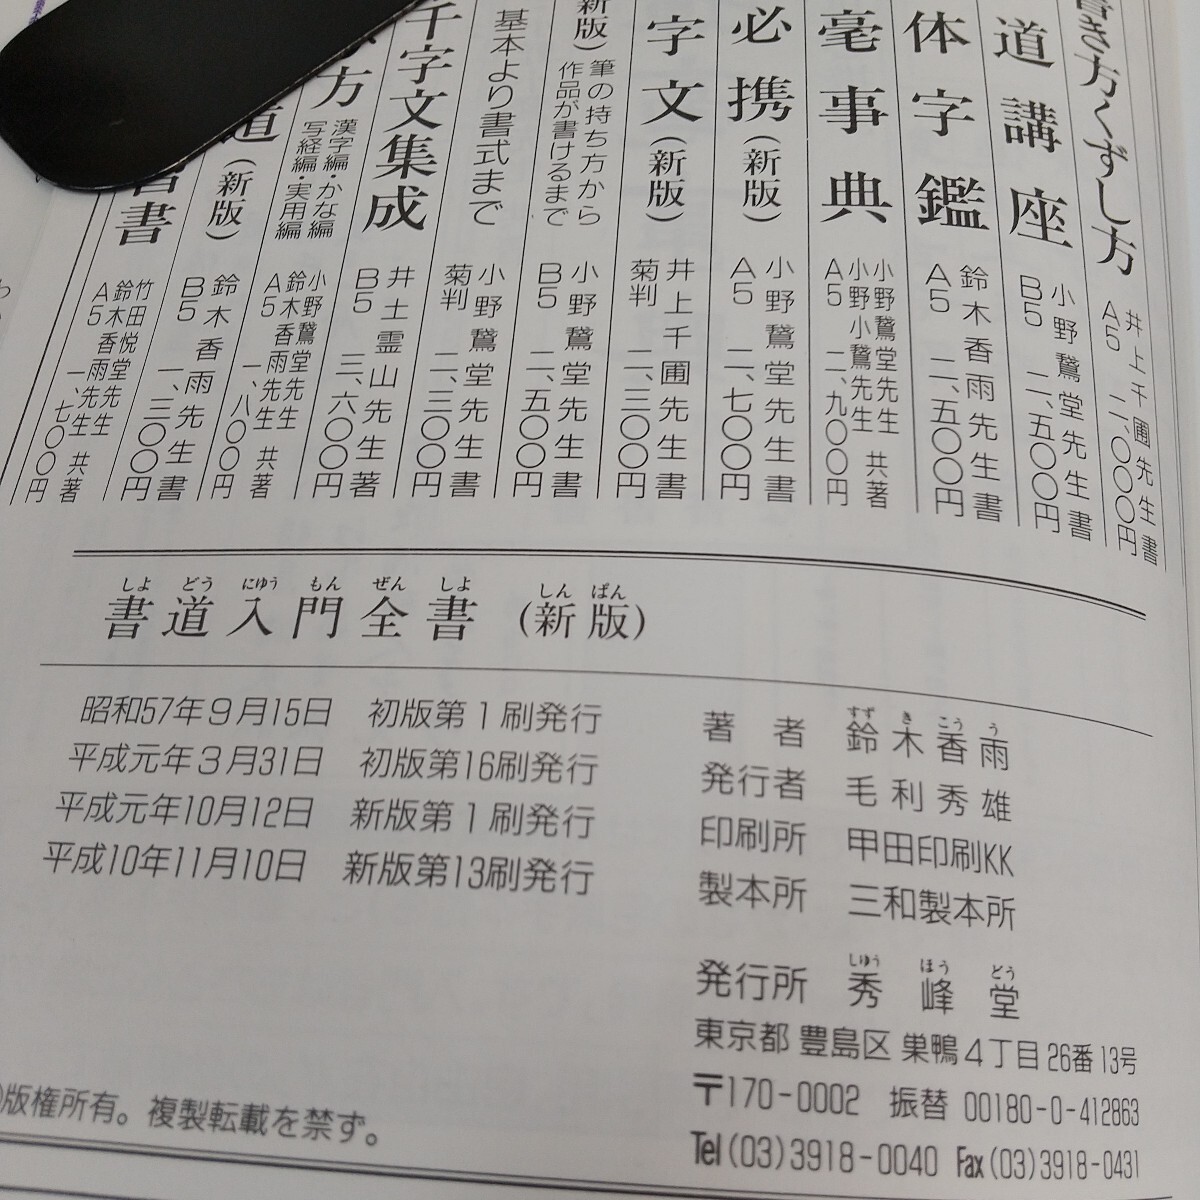 書き方くずし方 井上千圃先生書 A5 二、〇〇〇円
道講座 小野鵞堂先生書 B5 二、五〇〇円
体字鑑 鈴木香雨先生書 A5 二、五〇〇円
毫事典 小野鵞堂先生 小野小鵞先生 共著 A5 二、九〇〇円
必携(新版) 小野鵞堂先生書 A5 二、七〇〇円
字文(新版) 井上千圃先生書 菊判 二、三〇〇円
新版) 筆の持ち方から 作品が書けるまで 小野鵞堂先生書 B5 二、五〇〇円
基本より書式まで 小野鵞堂先生書 菊判 二、三〇〇円
千字文集成 井土霊山先生著 B5 三、六〇〇円
方 漢字編・かな編 写経編・実用編 小野鵞堂先生 鈴木香雨先生 共著 A5 一、八〇〇円
道(新版) 鈴木香雨先生書 B5 一、三〇〇円
書 竹田悦堂先生 鈴木香雨先生 共著 A5 一、七〇〇円
しよ どう にゆう もん ぜん しよ しん ぱん
書道入門全書(新版)
昭和57年9月15日 初版第1刷発行
平成元年3月31日 初版第16刷発行
平成元年10月12日 新版第1刷発行
平成10年11月10日 新版第13刷発行
すず き こう う
著者 鈴木香雨
発行者 毛利秀雄
印刷所 甲田印刷KK
製本所 三和製本所
しゆう ほう どう
発行所 秀峰堂
東京都豊島区巣鴨4丁目26番13号
〒170-0002 振替 00180-0-412863
Tel(03)3918-0040 Fax(03)3918-0431
版権所有。複製転載を禁ず。